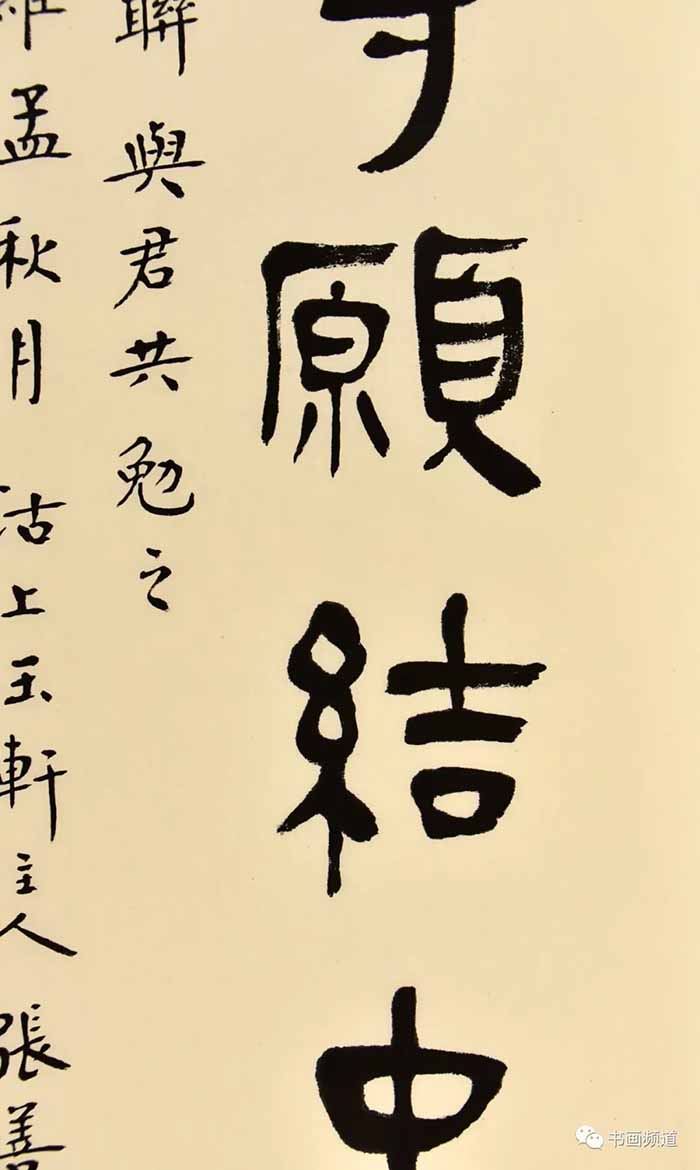 願結中
聯與君共勉之
孟秋月沽上玉軒主人張善
书画频道